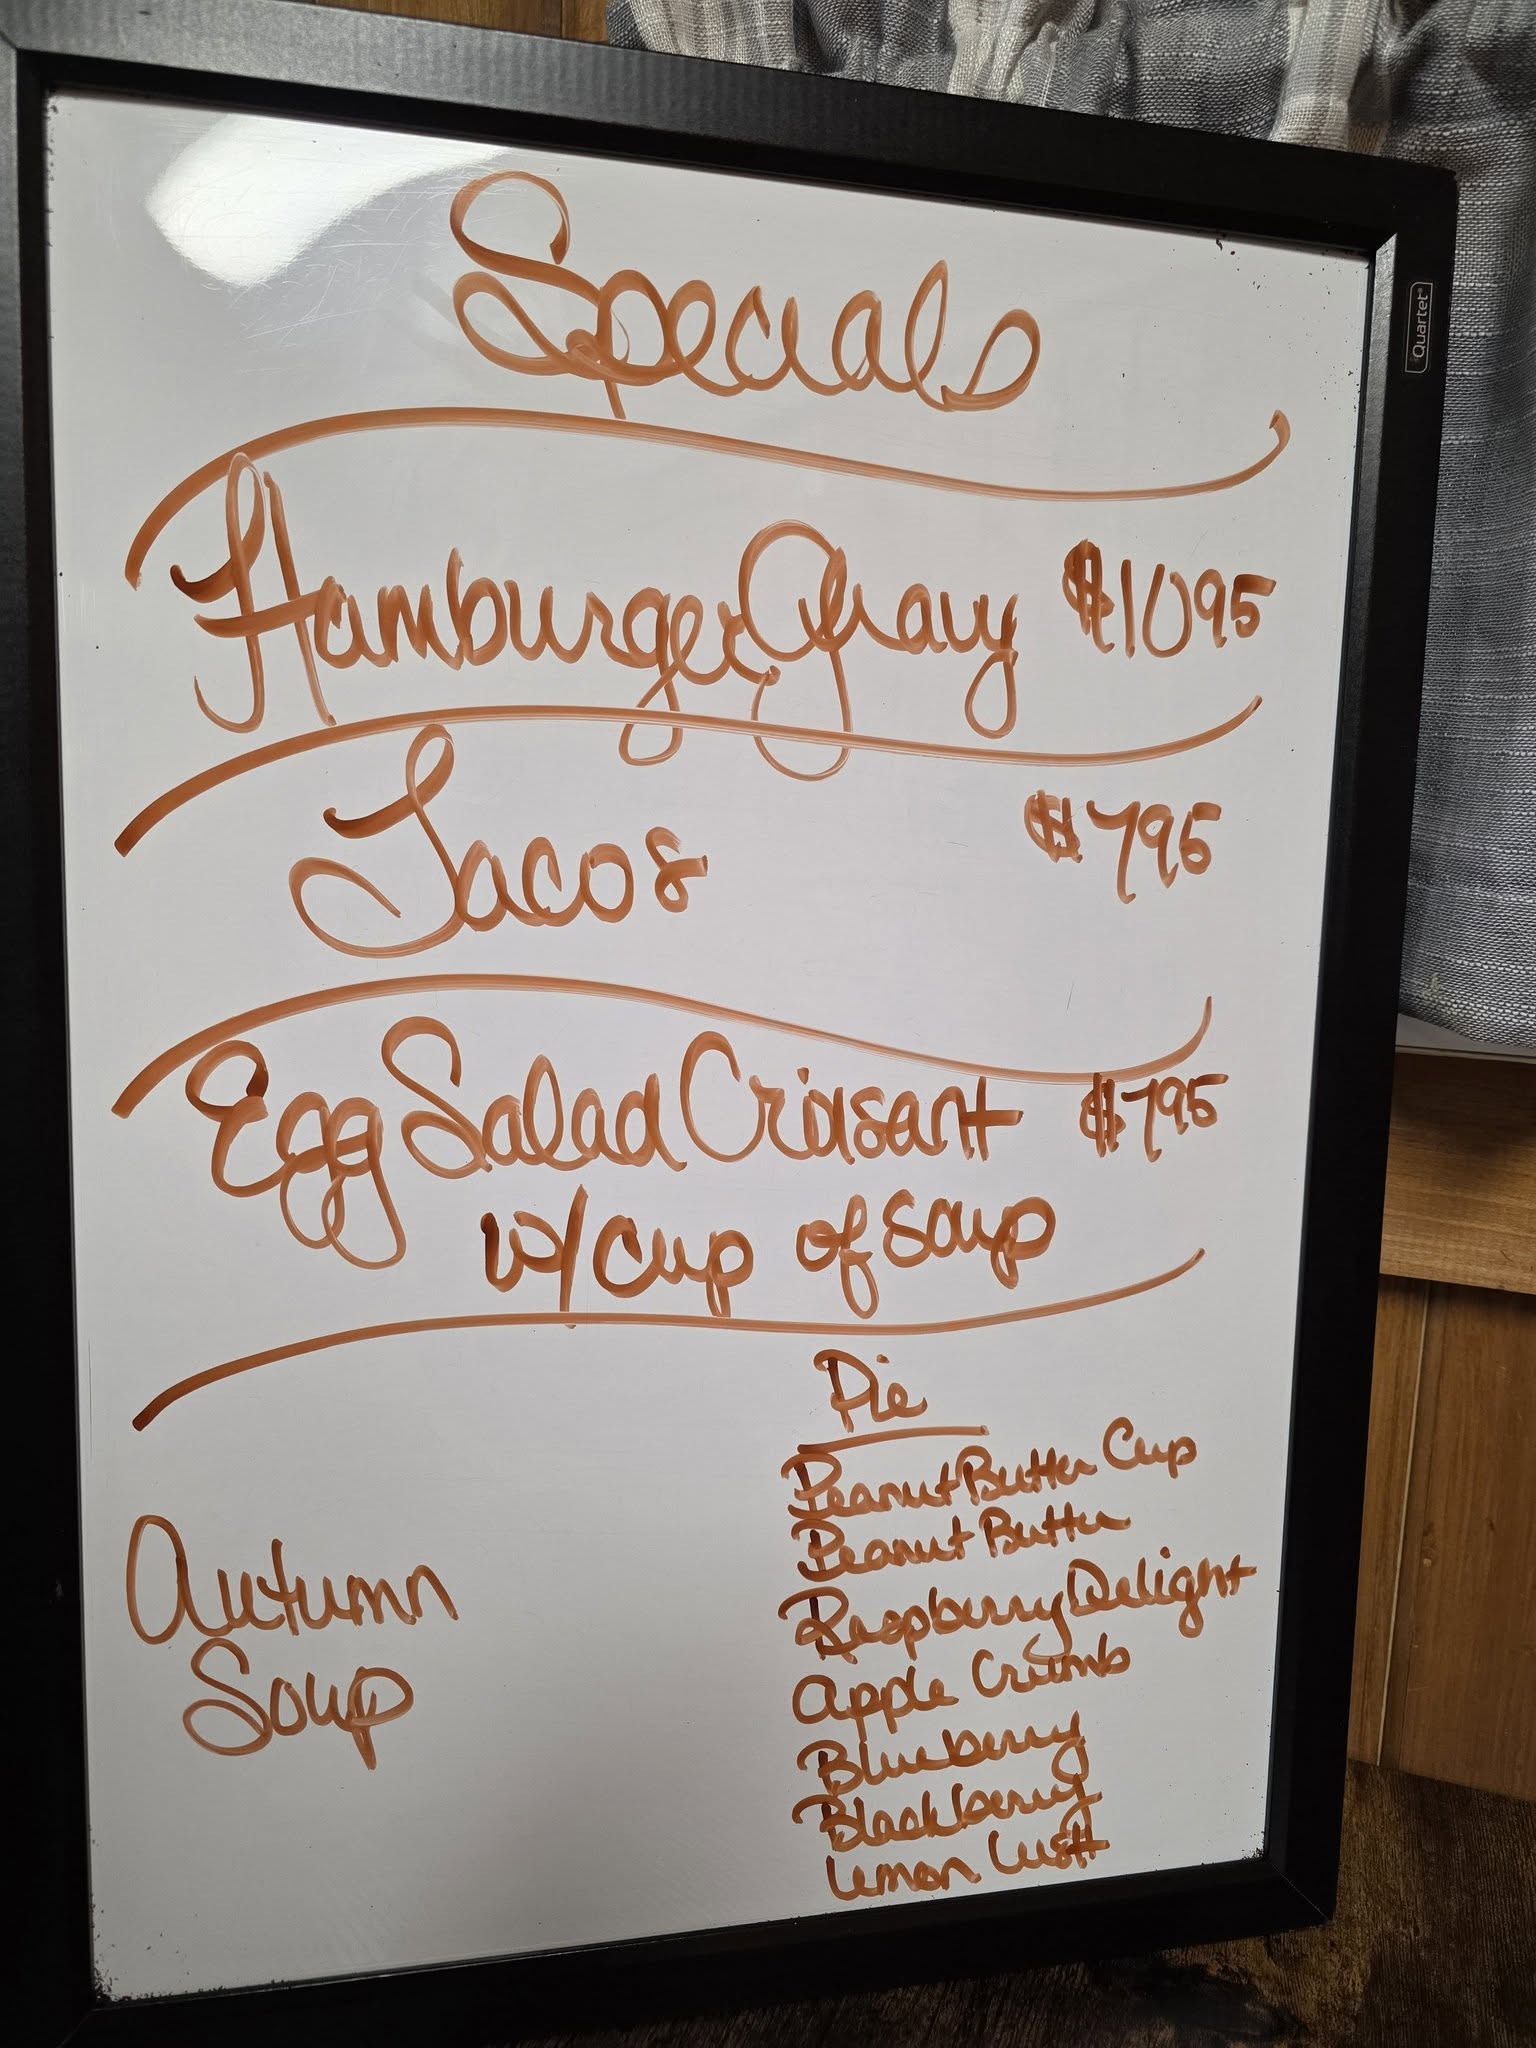 Specials
Quartet
Hamburger Gravy $10 95
Tacos $7 95
Egg Salad Criosant $7 95
w/ cup of soup
Pie
Peanut Butter Cup
Peanut Butter
Raspberry Delight
Apple Crumb
Blueberry
Blackberry
Lemon Lush
Autumn
Soup